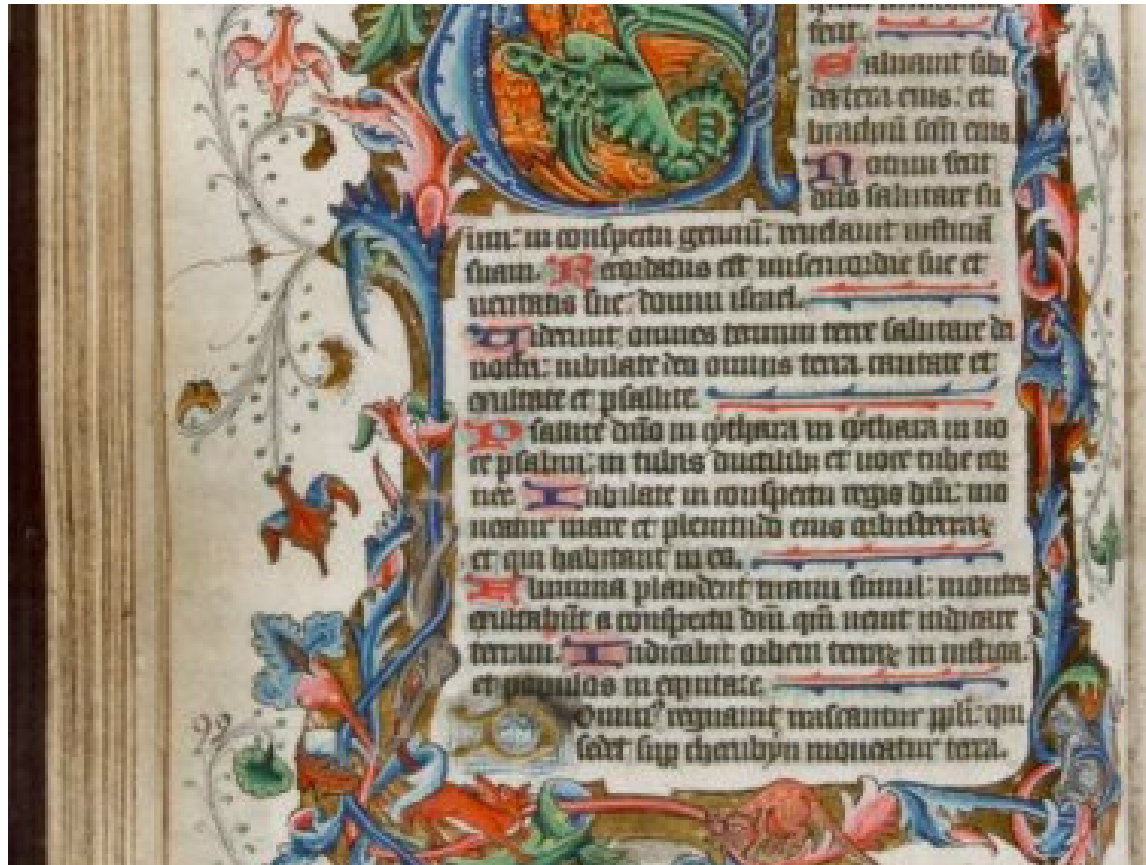 fecit.
Saluauit sibi
dextera eius: et
brachiū scm eius
Notum fecit
dn̄s salutare su
um: in conspectu gentiū: reuelauit iusticiā
suam. Recordatus est misericordie sue et
ueritatis sue: domui israel.
Uiderunt omnes termini terre salutare dei
nostri: iubilate deo omnis terra. cantate et
exultate et psallite.
Psallite dn̄o in cythara in cythara in uo
ce psalmi: in tubis ductilib; et uoce tube cor
nee. Iubilate in conspectu regis dn̄i: mo
ueatur mare et plenitudo eius orbisterraꝝ
et qui habitant in ea.
Flumina plaudent manu simul: montes
exultabūt a conspectu dn̄i. qm̄ uenit iudicare
terram. Iudicabit orbem terraꝝ in iusticia.
et populos in equitate.
Domin⁹ regnauit irascantur ppl̄i: qui
sedet sup cherubyn moueatur terra.
99